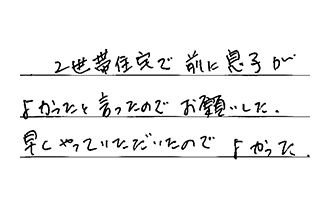 2世帯住宅で前に息子が
よかったと言ったのでお願いした.
早くやっていただいたのでよかった.